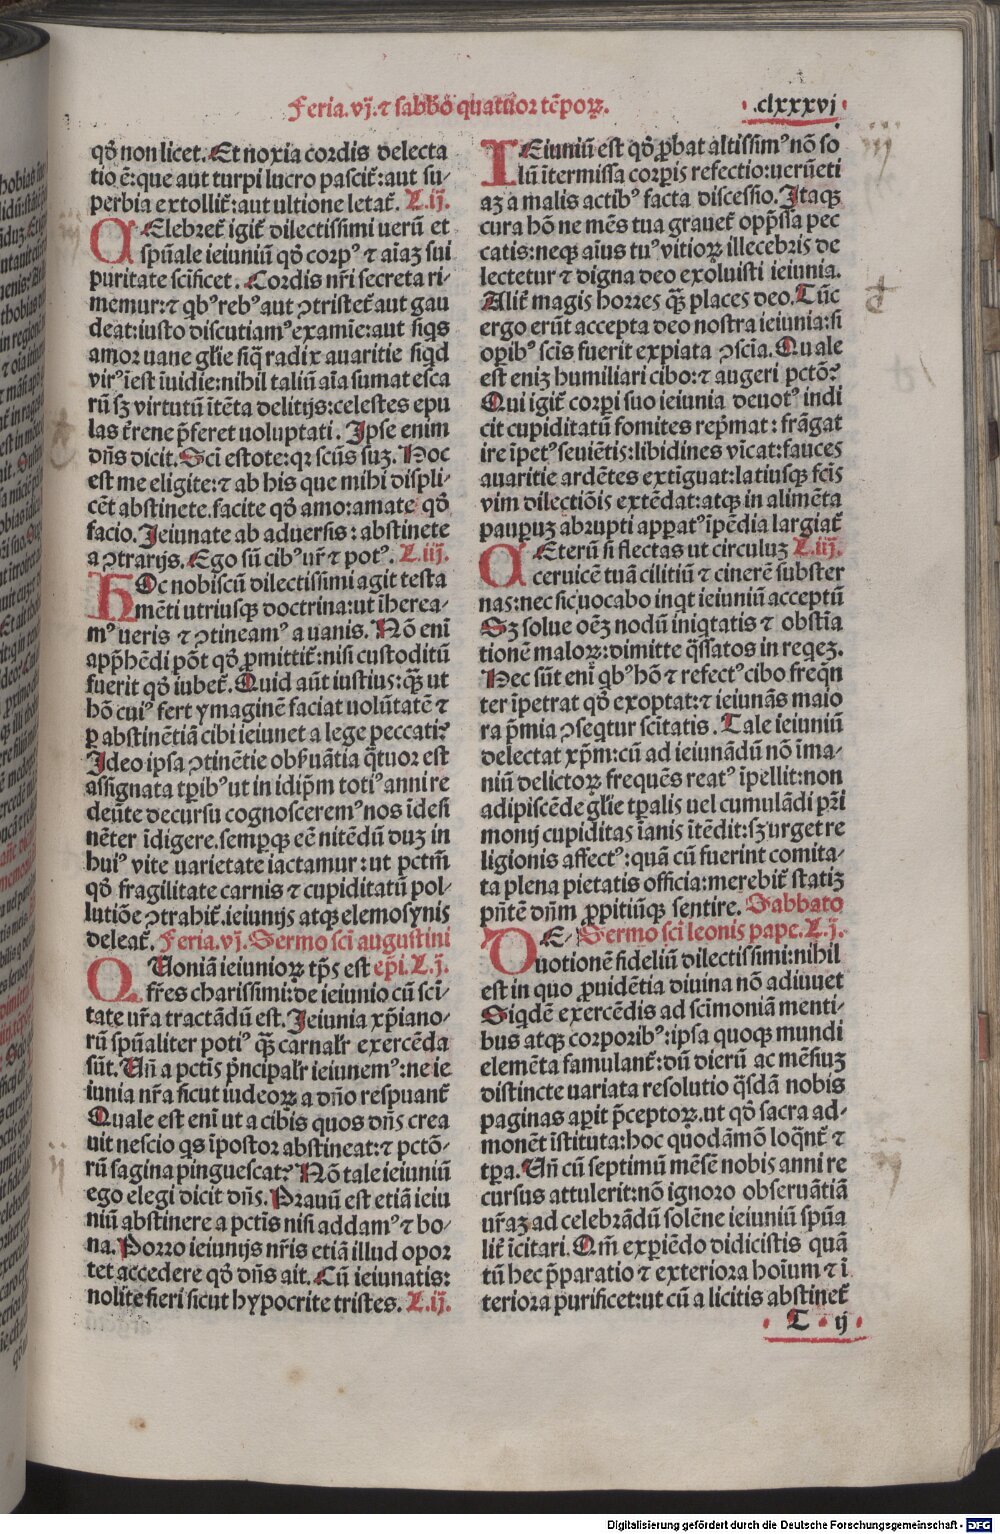 Feria.vj.⁊ sabb̄o quatuor tēpoꝝ.
.clxxxvj
qđ non licet. Et noxia cordis delecta
tio ē: que aut turpi lucro pascit᷑: aut su-
perbia extollit᷑: aut ultione letat᷑. L.ij.
CElebret᷑ igit᷑ dilectissimi uerū et
spūale ieiuniū qđ corpꝰ ⁊ aīaz sui
puritate scīficet. Cordis nr̄i secreta ri-
memur: ⁊ qbꝰ rebꝰ aut ꝯtristet᷑ aut gau
deat: iusto discutiamꝰ examīe: aut siqs
amor uane glīe siq̄ radix auaritie siqd
virꝰ īest īuidie: nihil taliū aīa sumat esca
rū sꝫ virtutū ītēta delitijs: celestes epu
las t̄rene p̄feret uoluptati. Ipse enim
dn̄s dicit. Scī estote: qꝛ scūs suꝫ. Hoc
est me eligite: ⁊ ab his que mihi displi-
cēt abstinete. facite qđ amo: amate qđ
facio. Ieiunate ab aduersis: abstinete
a ꝯtrarijs. Ego sū cibꝰ ur̄ ⁊ potꝰ. L.iij.
HOc nobiscū dilectissimi agit testa
mēti utriusqꝫ doctrina: ut īherea-
mꝰ ueris ⁊ ꝯtineamꝰ a uanis. Nō enī
app̄hēdi pōt qđ ꝓmittit᷑: nisi custoditū
fuerit qđ iubet᷑. Quid aūt iustius: qꝫ ut
hō cuiꝰ fert ymaginē faciat uolūtatē ⁊
ꝑ abstinētiā cibi ieiunet a lege peccati?
Ideo ipsa ꝯtinētie obs̄uātia q̄tuor est
assignata tꝑibꝰ ut in idip̄m totiꝰ anni re
deūte decursu cognosceremꝰ nos īdesi
nēter īdigere. semperqꝫ eē nitēdū duꝫ in
huiꝰ vite uarietate iactamur: ut ꝑctm̄
qđ fragilitate carnis ⁊ cupiditatū pol-
lutiōe ꝯtrahit᷑. ieiunijs atqꝫ elemosynis
deleat᷑. Feria.vj. Sermo scī augustini
QUoniā ieiunioꝝ tp̄s est ep̄i. L.j.
fr̄es charissimi: de ieiunio cū scī-
tate ur̄a tractādū est. Ieiunia xp̄iano-
rū spūaliter potiꝰ qꝫ carnalr̄ exercēda
sūt. Un̄ a pctīs p̄ncipalr̄ ieiunemꝰ: ne ie
iunia nr̄a sicut iudeoꝝ a dn̄o respuant᷑
Quale est enī ut a cibis quos dn̄s crea
uit nescio qs īpostor abstineat: ⁊ pctō-
rū sagina pinguescat? Nō tale ieiuniū
ego elegi dicit dn̄s. Prauū est etiā ieiu
niū abstinere a pctīs nisi addamꝰ ⁊ bo-
na. Porro ieiunijs nr̄is etiā illud opor
tet accedere qđ dn̄s ait. Cū ieiunatis:
nolite fieri sicut hypocrite tristes. L.ij.
IEiuniū est qđ ꝓbat altissimꝰ nō so
lū ītermissa corꝑis refectio: uerūeti
aꝫ a malis actibꝰ facta discessio. Itaqꝫ
cura hō ne mēs tua grauet᷑ opp̄ssa pec
catis: neqꝫ aīus tuꝰ vitioꝝ illecebris de
lectetur ⁊ digna deo exoluisti ieiunia.
Alit᷑ magis horres qꝫ places deo. Tūc
ergo erūt accepta deo nostra ieiunia: si
oꝑibꝰ scīs fuerit expiata ꝯscīa. Quale
est eniꝫ humiliari cibo: ⁊ augeri pctō?
Qui igit᷑ corꝑi suo ieiunia deuotꝰ indi
cit cupiditatū fomites rep̄mat: frāgat
ire īpetꝰ seuiētis: libidines vīcat: fauces
auaritie ardētes extīguat: latiusqꝫ fcīs
vim dilectiōis extēdat: atqꝫ in alimēta
paupꝑuꝫ abrupti apparatꝰ īpēdia largiat᷑
CEterū si flectas ut circuluꝫ L.iij.
ceruicē tuā cilitiū ⁊ cinerē subster
nas: nec sic uocabo inqt ieiuniū acceptū
Sꝫ solue oēꝫ nodū iniqtatis ⁊ obstīa
tionē maloꝝ: dimitte q̄ssatos in reqeꝫ.
Hec sūt enī qbꝰ hō ⁊ refectꝰ cibo freqn̄
ter īpetrat qđ exoptat: ⁊ ieiunās maio
ra p̄mia ꝯseqtur scītatis. Tale ieiuniū
delectat xp̄m: cū ad ieiunādū nō īma-
niū delictoꝝ frequēs reatꝰ īpellit: non
adipiscēde glīe tꝑalis uel cumulādi pr̄i
monij cupiditas īanis ītēdit: sꝫ urget re
ligionis affectꝰ: quā cū fuerint comita-
ta plena pietatis officia: merebit᷑ statiꝫ
pn̄tē dn̄m ꝓpitiūqꝫ sentire. Sabbato
DE- Sermo scī leonis pape. L.j.
uotionē fideliū dilectissimi: nihil
est in quo ꝓuidētia diuina nō adiuuet
Siqdē exercēdis ad scīmoniā menti-
bus atqꝫ corporibꝰ: ipsa quoqꝫ mundi
elemēta famulant᷑: dū dierū ac mēsiuꝫ
distincte uariata resolutio q̄sdā nobis
paginas aꝑit p̄ceptoꝝ. ut qđ sacra ad-
monēt īstituta: hoc quodāmō loq̄nt᷑ ⁊
tꝑa. Un̄ cū septimū mēsē nobis anni re
cursus attulerit: nō ignoro obseruātiā
ur̄aꝫ ad celebrādū solēne ieiuniū spūa
lit᷑ īcitari. Om̄ exꝑiēdo didicistis quā
tū hec p̄paratio ⁊ exteriora hoīum ⁊ ī
teriora purificet: ut cū a licitis abstinet᷑
T ij
Digitalisierung gefördert durch die Deutsche Forschungsgemeinschaft - DFG